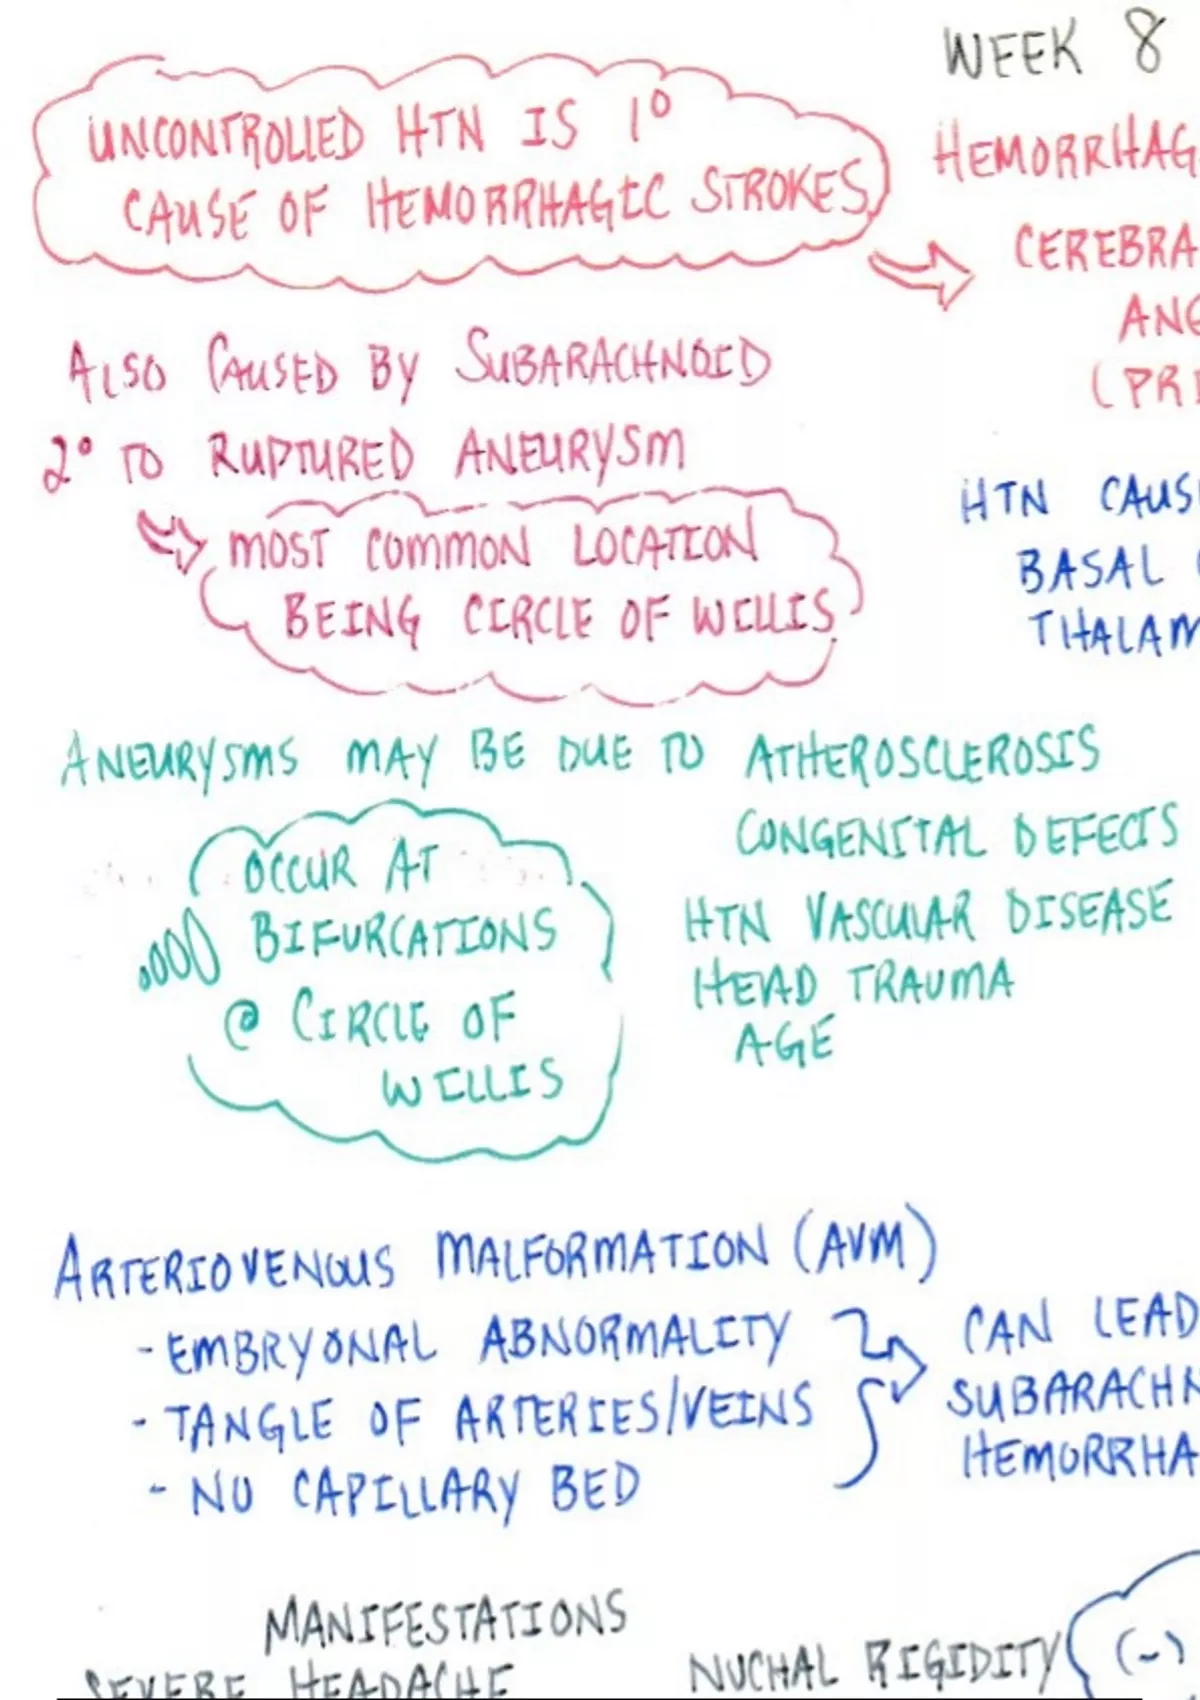 WEEK 8
UNCONTROLLED HTN IS 1°
CAUSE OF HEMORRHAGIC STROKES
HEMORRHAG
CEREBRA
ANG
(PRI
ALSO CAUSED BY SUBARACHNOID
2° TO RUPTURED ANEURYSM
MOST COMMON LOCATION
BEING CIRCLE OF WILLIS
HTN CAUS
BASAL
THALAM
ANEURYSMS MAY BE DUE TO ATHEROSCLEROSIS
CONGENITAL DEFECTS
HTN VASCULAR DISEASE
HEAD TRAUMA
AGE
OCCUR AT
BIFURCATIONS
@ CIRCLE OF
WILLIS
ARTERIOVENOUS MALFORMATION (AVM)
- EMBRYONAL ABNORMALITY
- TANGLE OF ARTERIES/VEINS
- NO CAPILLARY BED
CAN LEAD
SUBARACHN
HEMORRHA
MANIFESTATIONS
SEVERE HEADACHE
NUCHAL RIGIDITY
(-)